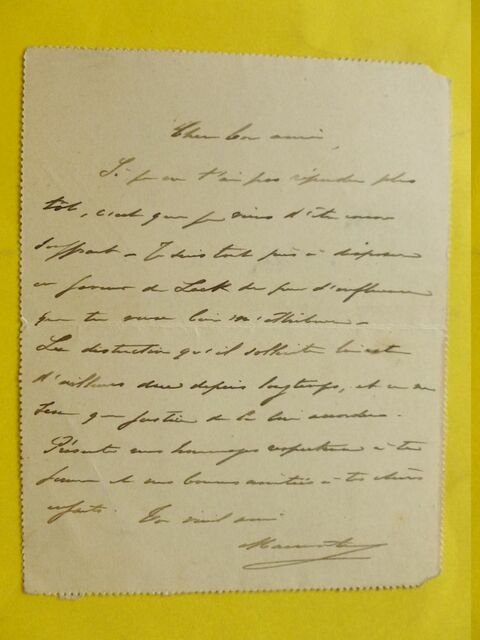 Cher bon ami,
Si je ne t'ai pas répondu plus
tôt, c'est que je viens d'être
souffrant – Je suis tout prêt à disposer
en faveur de Lack du peu d'influence
que tu veux bien m'attribuer –
La distinction qu'il sollicite lui est
d'ailleurs due depuis longtemps, et ce ne
sera que justice de la lui accorder.
Présente mes hommages respectueux à ta
femme et mes bonnes amitiés à tes chers
enfants. Ton vieil ami